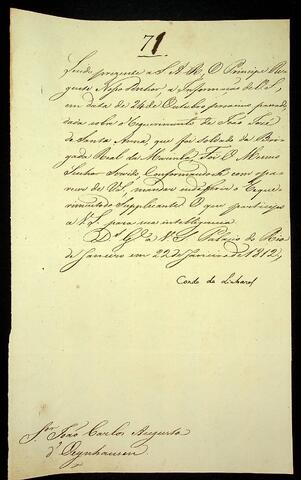 71
Sendo presente a S. A. R. O Principe Re-
gente Nosso Senhor, a Informação de V. S.
em data de 24 de Outubro proximo passado,
dada sobre o Requerimento de São José
de Santa Anna, que foi Soldado da Bri-
gada Real da Marinha: Foi O Mesmo
Senhor Servido Conformando-se com o pa-
recer de V. S. mandar indeferir o Reque-
rimento do Supplicante. O que participo
a V. S. para sua intelligencia.
D.s G.e a V. S. Palacio do Rio
de Janeiro em 22 de Janeiro de 1812.
Conde de Linhares
S.r João Carlos Augusto
d'Oeynhausen